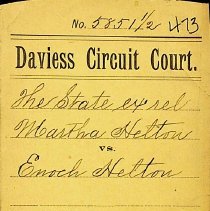 No. 5851½ 473
Daviess Circuit Court.
The State ex rel
Martha Helton
vs.
Enoch Helton